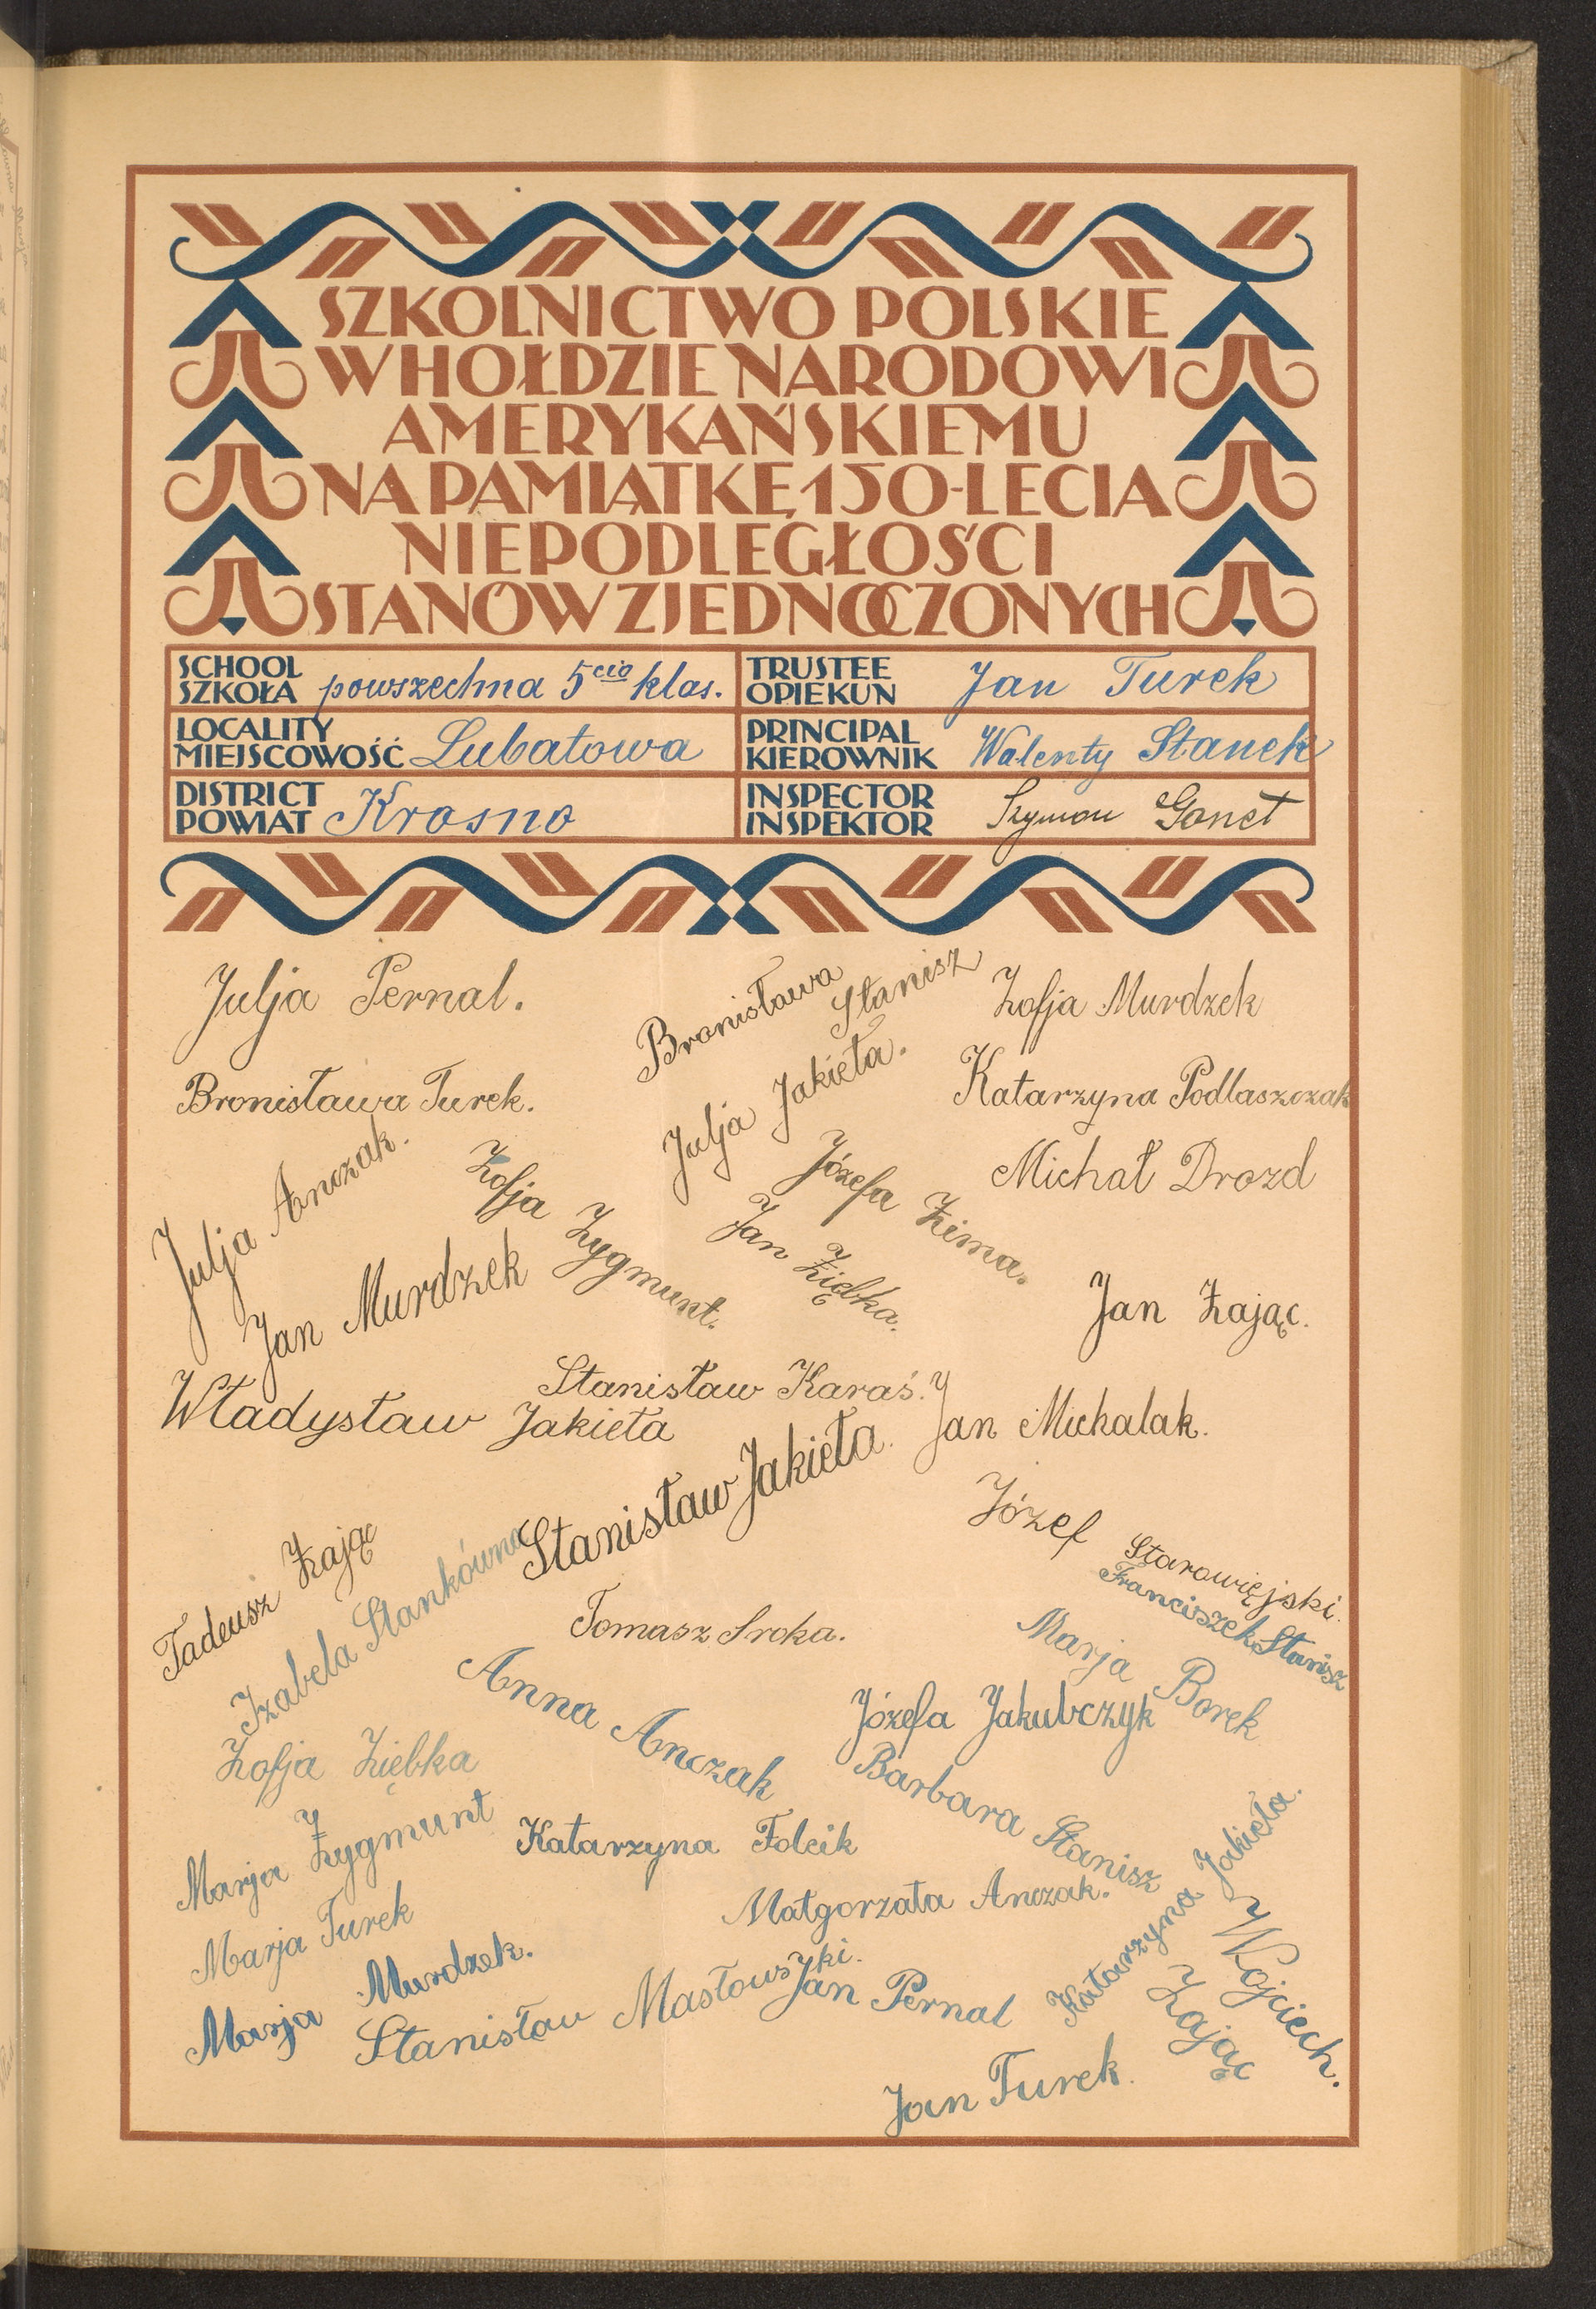 SZKOLNICTWO POLSKIE
W HOŁDZIE NARODOWI
AMERYKAŃSKIEMU
NA PAMIĄTKĘ 150-LECIA
NIEPODLEGŁOŚCI
STANÓW ZJEDNOCZONYCH
SCHOOL
SZKOŁA powszechna 5cio klas.
TRUSTEE
OPIEKUN Jan Turek
LOCALITY
MIEJSCOWOŚĆ Lubatowa
PRINCIPAL
KIEROWNIK Walenty Stanek
DISTRICT
POWIAT Krosno
INSPECTOR
INSPEKTOR Szymon Gonet
Julja Pernal.
Bronisława Stanisz
Zofja Murdzek
Bronisława Turek.
Julja Jakieła.
Katarzyna Podlaszczak
Julja Anczak.
Zofja Zygmunt.
Józefa Zima.
Michał Drozd
Jan Murdzek
Jan Ziębka.
Jan Zając.
Stanisław Karaś.
Władysław Jakieła
Jan Michalak.
Stanisław Jakieła.
Józef Starowiejski.
Tadeusz Zając
Izabela Stankówna
Tomasz Sroka.
Franciszek Stanisz
Marja Borek
Anna Anczak
Józefa Jakubczyk
Zofja Ziębka
Barbara Stanisz
Marja Zygmunt
Katarzyna Folcik
Katarzyna Jakieła.
Małgorzata Anczak.
Marja Turek
Wojciech Zając.
Marja Murdzek.
Stanisław Masłowski.
Jan Pernal
Jan Turek.